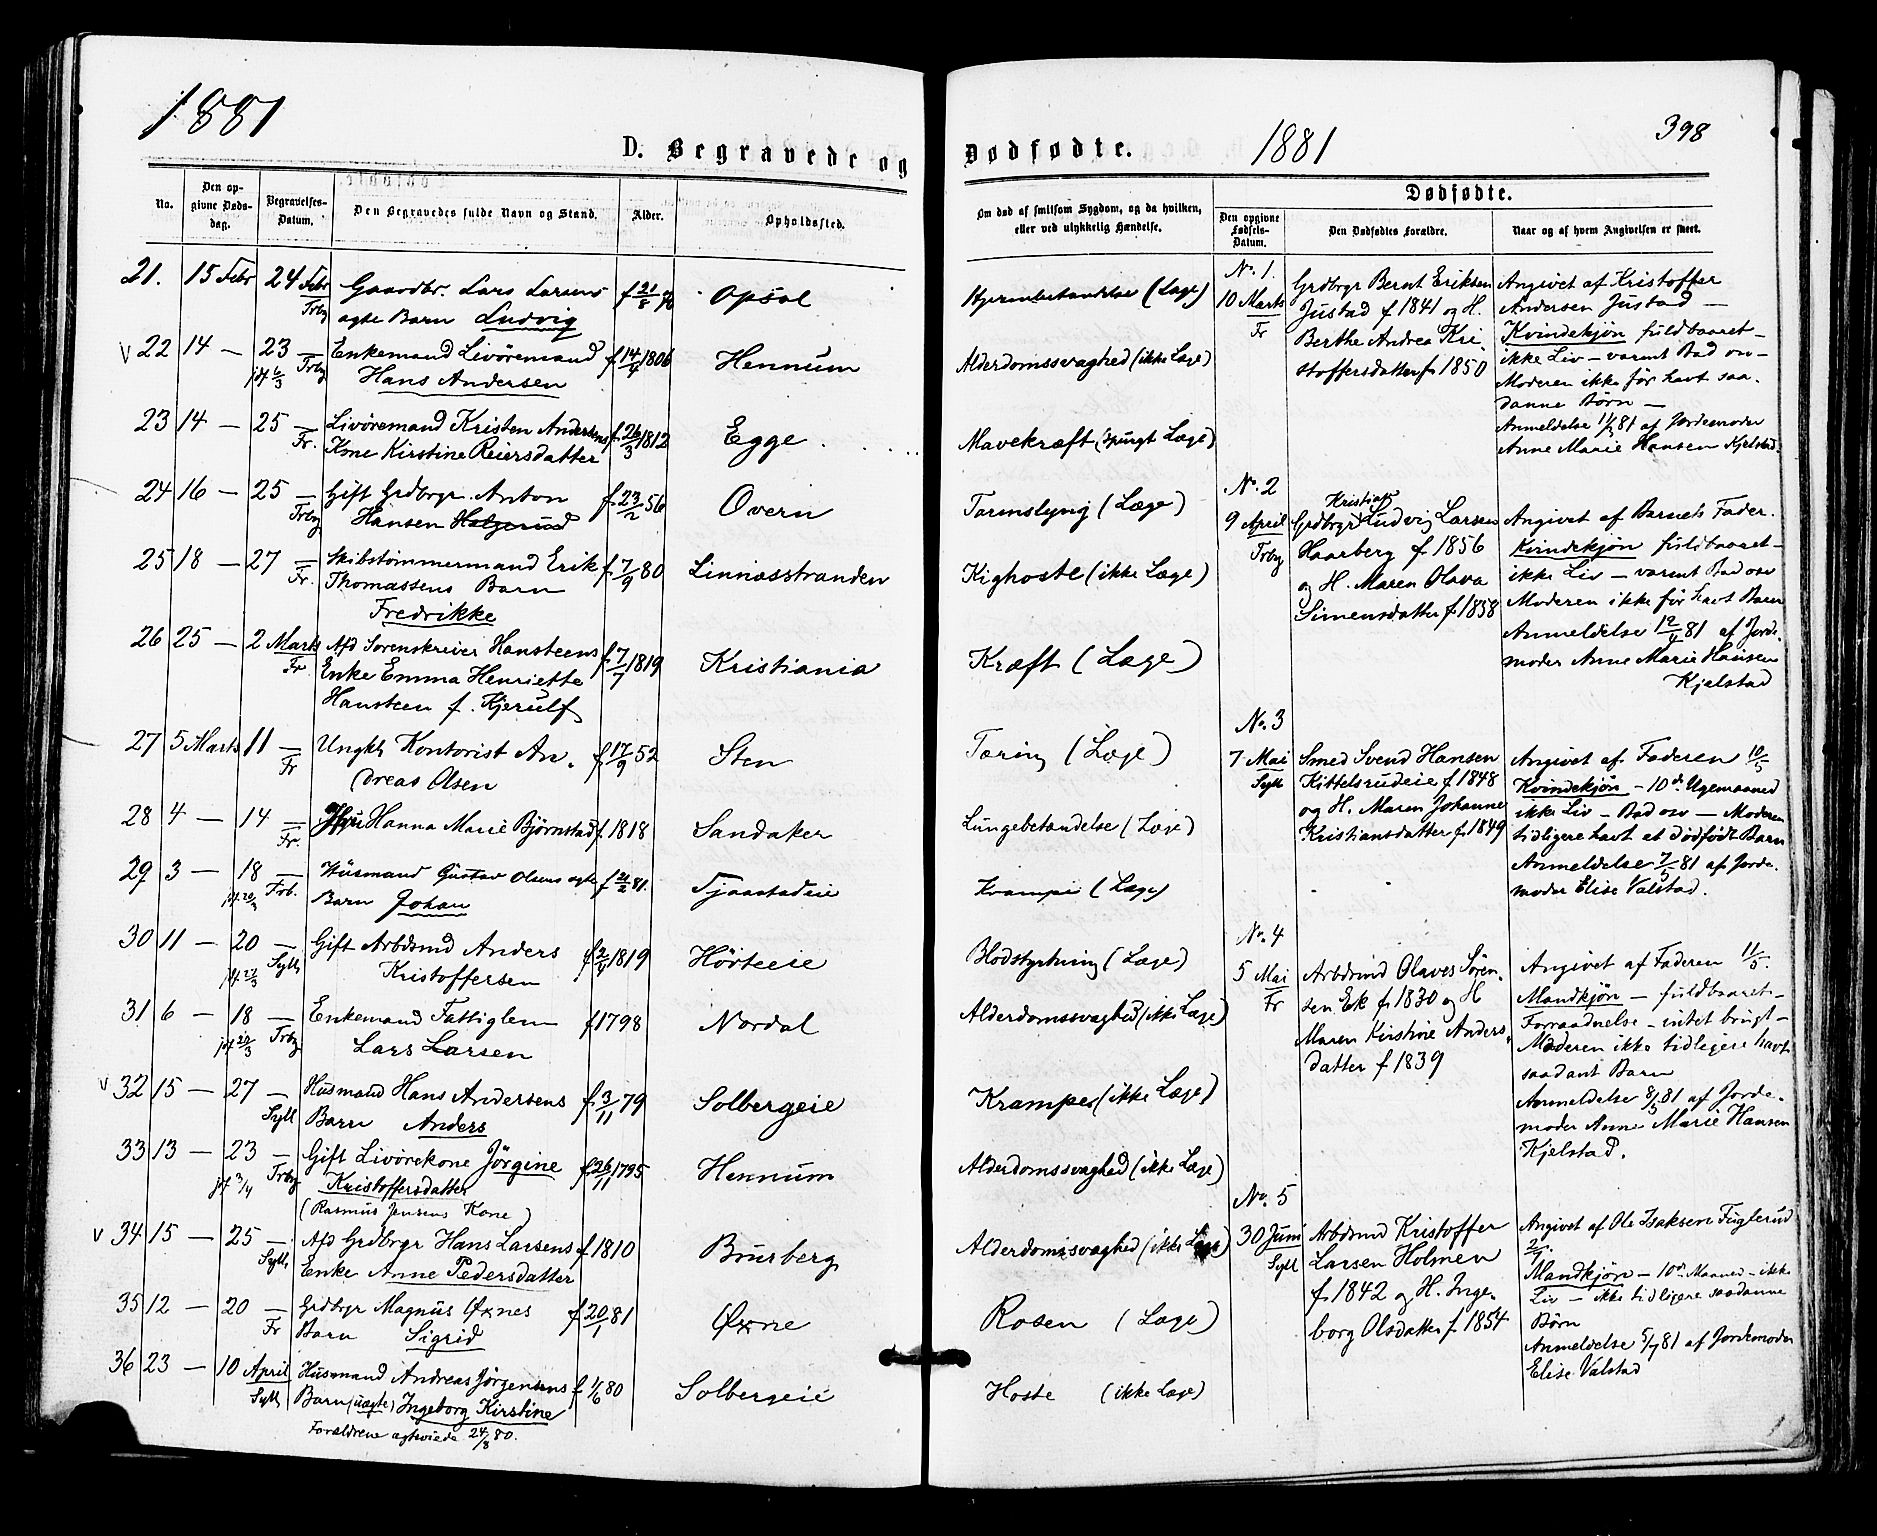 1881
D. Begravede og
No.
Den op-
givne Døds-
dag.
Begravelses-
Datum.
Den Begravedes fulde Navn og Stand.
Alder.
Opholdssted.
21. 15 Febr 24 Febr Gaardbr. Lars Larsens f 21/8 Opsal
Frby ægte Barn Ludvig
V 22 14 — 23 — Enkemand Livøremand f 14/4 1806 Hennum
jf 6/3 Frby Hans Andersen
23 14 — 25 — Livøremand Kristen Andersens f 26/3 1812 Egge
Fr. Kone Kirstine Reiersdatter
24 16 — 25 — Gift Grdbrgr Anton f 23/2 56 Overn
Frby Hansen Helgerud
25 18 — 27 — Skibstømmermand Erik f 7/9 80 Linnæsstranden
Fr. Thomassens Barn
Fredrikke
26 25 — 2 Marts Afd Sorenskriver Hansteens f 7/7 1819 Kristiania
Fr Enke Emma Henriette
Hansteen f. Kjerulf
27 5 Marts 11 — Ungkl Kontorist An- f 17/9 52 Sten
Fr dreas Olsen
28 4 — 14 — Hanna Marie Bjørnstad f 1818 Sandaker
Fr.
29 3 — 18 — Husmand Gustav Olsens ægte f 21/2 81. Tjaastadeie
Frb. Barn Johan
30 11 — 20 — Gift Arbdmd Anders f 2/4 1819 Hørteeie
jf. 27/3 Syll Kristoffersen
31 6 — 18 — Enkemand Fattiglem f 1798 Nordal
jf 27/3 Frby Lars Larsen
V 32 15 — 27 — Husmand Hans Andersens f 3/11 79 Solbergeie
Syll Barn Anders
33 13 — 23 — Gift Livørekone Jørgine f 26/11 1795 Hennum
jf 3/4 Frby Kristoffersdatter
(Rasmus Jensens Kone)
V 34 15 — 25 — Afd Grdbrgr Hans Larsens f 1810 Bursberg
Syll. Enke Anne Pedersdatter
35 12 — 20 — Grdbrgr Magnus Øxnes f 20/1 81 Øxne
Fr Barn Sigrid
36 23 — 10 April Husmand Andreas Jørgensens f 1/6 80 Solbergeie
Syll Barn (uægte) Ingeborg Kirstine
Forældrene ægteviede 24/8 80.
Dødfødte. 1881 398
Om død af smitsom Sygdom, og da hvilken,
eller ved ulykkelig Hændelse.
Dødfødte.
Den opgivne
Fødsels-
Datum.
Den Dødfødtes Forældre.
Naar og af hvem Angivelsen er skeet.
Hjernebetændelse (Læge)
Alderdomssvaghed (ikke Læge)
Mavekræft (spurgt Læge)
Tarmslyng (Læge)
Kighoste (ikke Læge)
Kræft (Læge)
Tæring (Læge)
Lungebetændelse (Læge)
Krampe (Læge)
Blodstyrtning (Læge)
Alderdomssvaghed (ikke Læge)
Krampe (ikke Læge)
Alderdomssvaghed (ikke Læge)
Alderdomssvaghed (ikke Læge)
Rosen (Læge)
Hoste (ikke Læge)
No. 1.
10 Marts
Fr
Grdbrgr Bernt Eriksen
Justad f 1841 og H.
Berthe Andrea Kri-
stoffersdatter f. 1850
Angivet af Kristoffer
Andersen Justad —
Kvindekjøn fuldbaaret —
ikke Liv — varmt Bad osv —
Moderen ikke før havt saa-
danne Børn —
Anmeldelse 11/3 81 af Jordemoder
Anne Marie Hansen Kjelstad.
No. 2
9 April
Frby
Kristian
Grdbrgr Ludvig Larsen
Haarberg f 1856
og H. Maren Olava
Simensdatter f. 1858
Angivet af Barnets Fader.
Kvindekjøn fuldbaaret —
ikke Liv — varmt Bad osv
Moderen ikke før havt Børn
Anmeldelse 12/4 81 af Jorde-
moder Anne Marie Hansen
Kjelstad
No. 3
7 Mai
Syll
Smed Svend Hansen
Kittelsrudeie f. 1848
og H. Maren Johanne
Kristiansdatter f. 1849
Angivet af Faderen 10/5
Kvindekjøn — 10de Ugemaaned
ikke Liv — Bad osv — Moderen
tidligere havt et dødfødt Barn
Anmeldelse 7/5 81 af Jorde-
moder Elise Valstad.
No. 4
5 Mai
Fr
Arbdmd Olaves Søren-
sen Ek f. 1830 og H
Maren Kirstine Anders-
datter f 1839
Angivet af Faderen 11/5.
Mandkjøn — fuldbaaret —
Forraadnelse — intet brugt —
Moderen ikke tidligere havt
saadant Barn
Anmeldelse 8/5 81 af Jorde-
moder Anne Marie Hansen
Kjelstad.
No. 5
30 Juni
Syll
Arbdmd Kristoffer
Larsen Holmen
f. 1842 og H. Inge-
borg Olsdatter f. 1854
Angivet af Ole Isaksen Fuglerud
2/7.
Mandkjøn — 10de Maaned — ikke
Liv — ikke tidligere saadanne
Børn
Anmeldelse 5/7 81 af Jordemoder
Elise Valstad